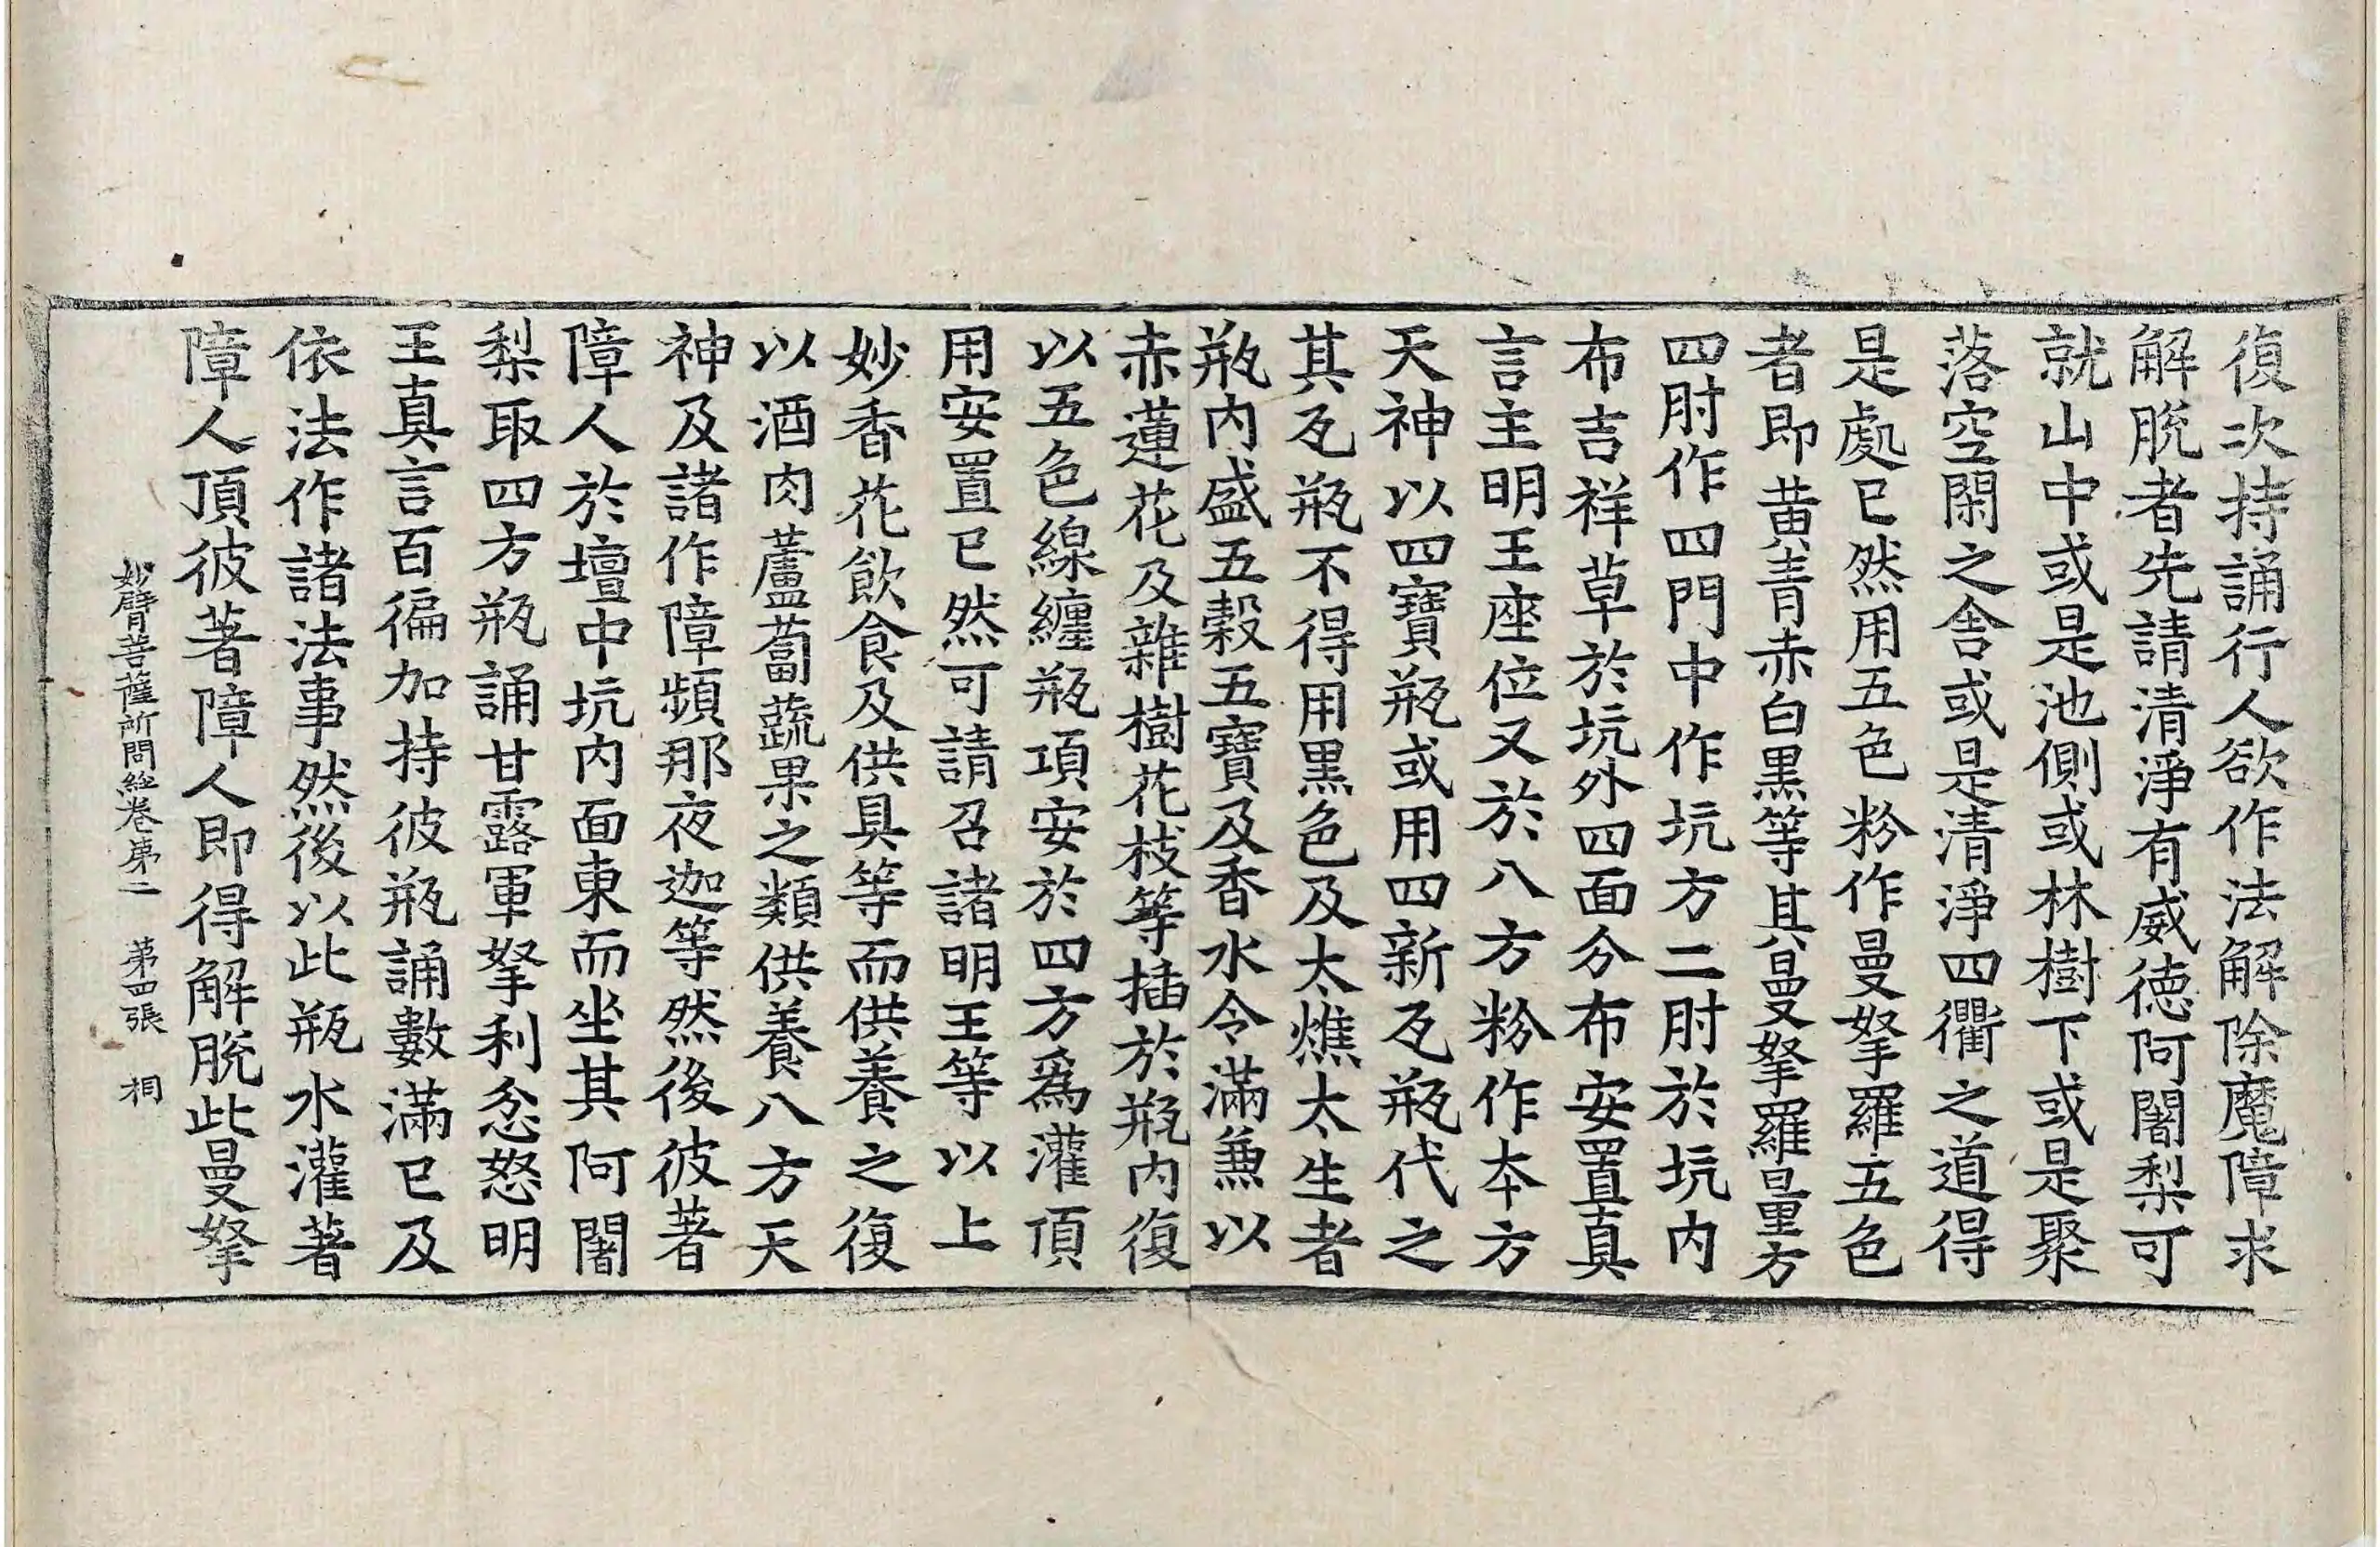 復次持誦行人欲作法解除魔障求
解脫者先請清淨有威德阿闍梨可
就山中或是池側或林樹下或是聚
落空閑之舍或是清淨四衢之道得
是處已然用五色粉作曼拏羅五色
者即黃青赤白黑等其曼拏羅量方
四肘作四門中作坑方二肘於坑內
布吉祥草於坑外四面分布安置真
言主明王座位又於八方粉作本方
天神以四寶瓶或用四新瓦瓶代之
其瓦瓶不得用黑色及太燋太生者
瓶內盛五穀五寶及香水令滿兼以
赤蓮花及雜樹花枝等插於瓶內復
以五色線纏瓶項安於四方爲灌頂
用安置已然可請召諸明王等以上
妙香花飲食及供具等而供養之復
以酒肉蘆蔔蔬果之類供養八方天
神及諸作障頻那夜迦等然後彼著
障人於壇中坑內面東而坐其阿闍
梨取四方瓶誦甘露軍拏利忿怒明
王真言百徧加持彼瓶誦數滿已及
依法作諸法事然後以此瓶水灌著
障人頂彼著障人即得解脫此曼拏
妙臂菩薩所問經卷第二 第四張 桐